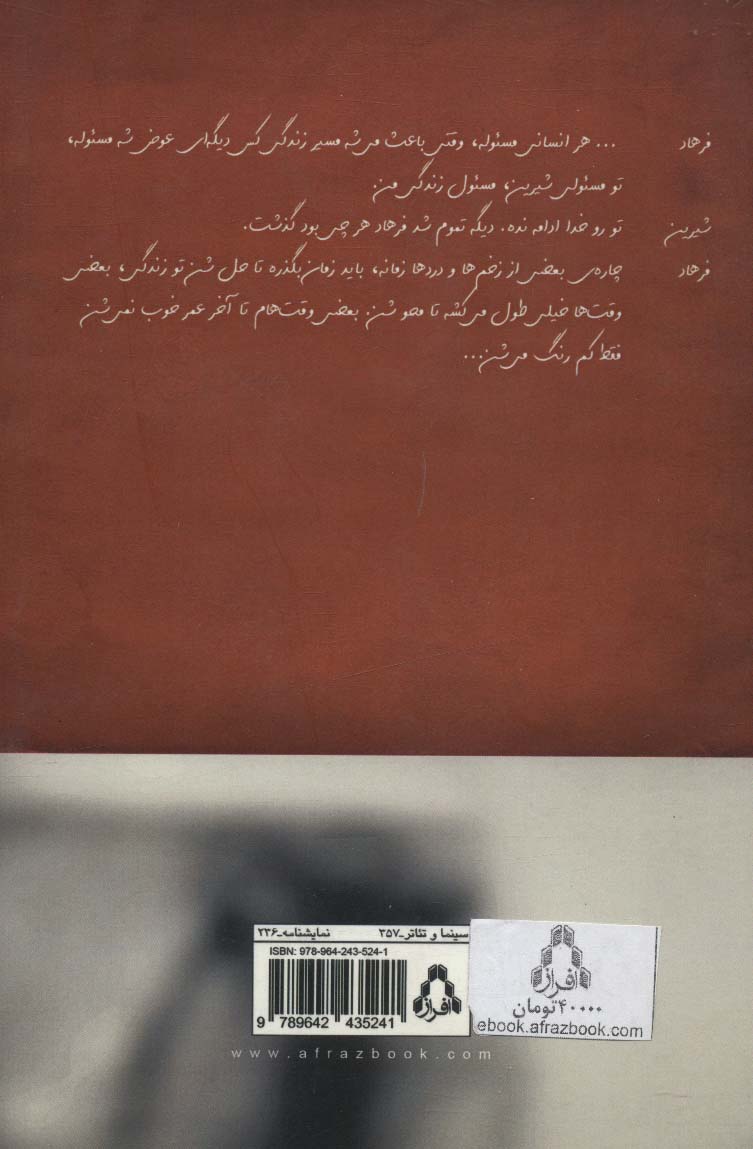 فرهاد ... هر انسانی مسئوله، وقتی باعث می‌شه مسیر زندگی کس دیگه‌ای عوض شه مسئوله،
تو مسئولی شیرین، مسئول زندگی من.
شیرین تو رو خدا ادامه نده. دیگه تموم شد فرهاد هر چی بود گذشت.
فرهاد چاره‌ی بعضی از زخم‌ها و دردها زمانه، باید زمان بگذره تا حل شن تو زندگی، بعضی
وقت‌ها خیلی طول می‌کشه تا محو شن. بعضی وقت‌هام تا آخر عمر خوب نمی‌شن
فقط کم رنگ می‌شن...
سینما و تئاتر-۳۵۷ نمایشنامه-۲۳۶
ISBN: 978-964-243-524-1
9 789642 435241
افراز
افراز
۴۰۰۰۰ تومان
ebook.afrazbook.com
www.afrazbook.com